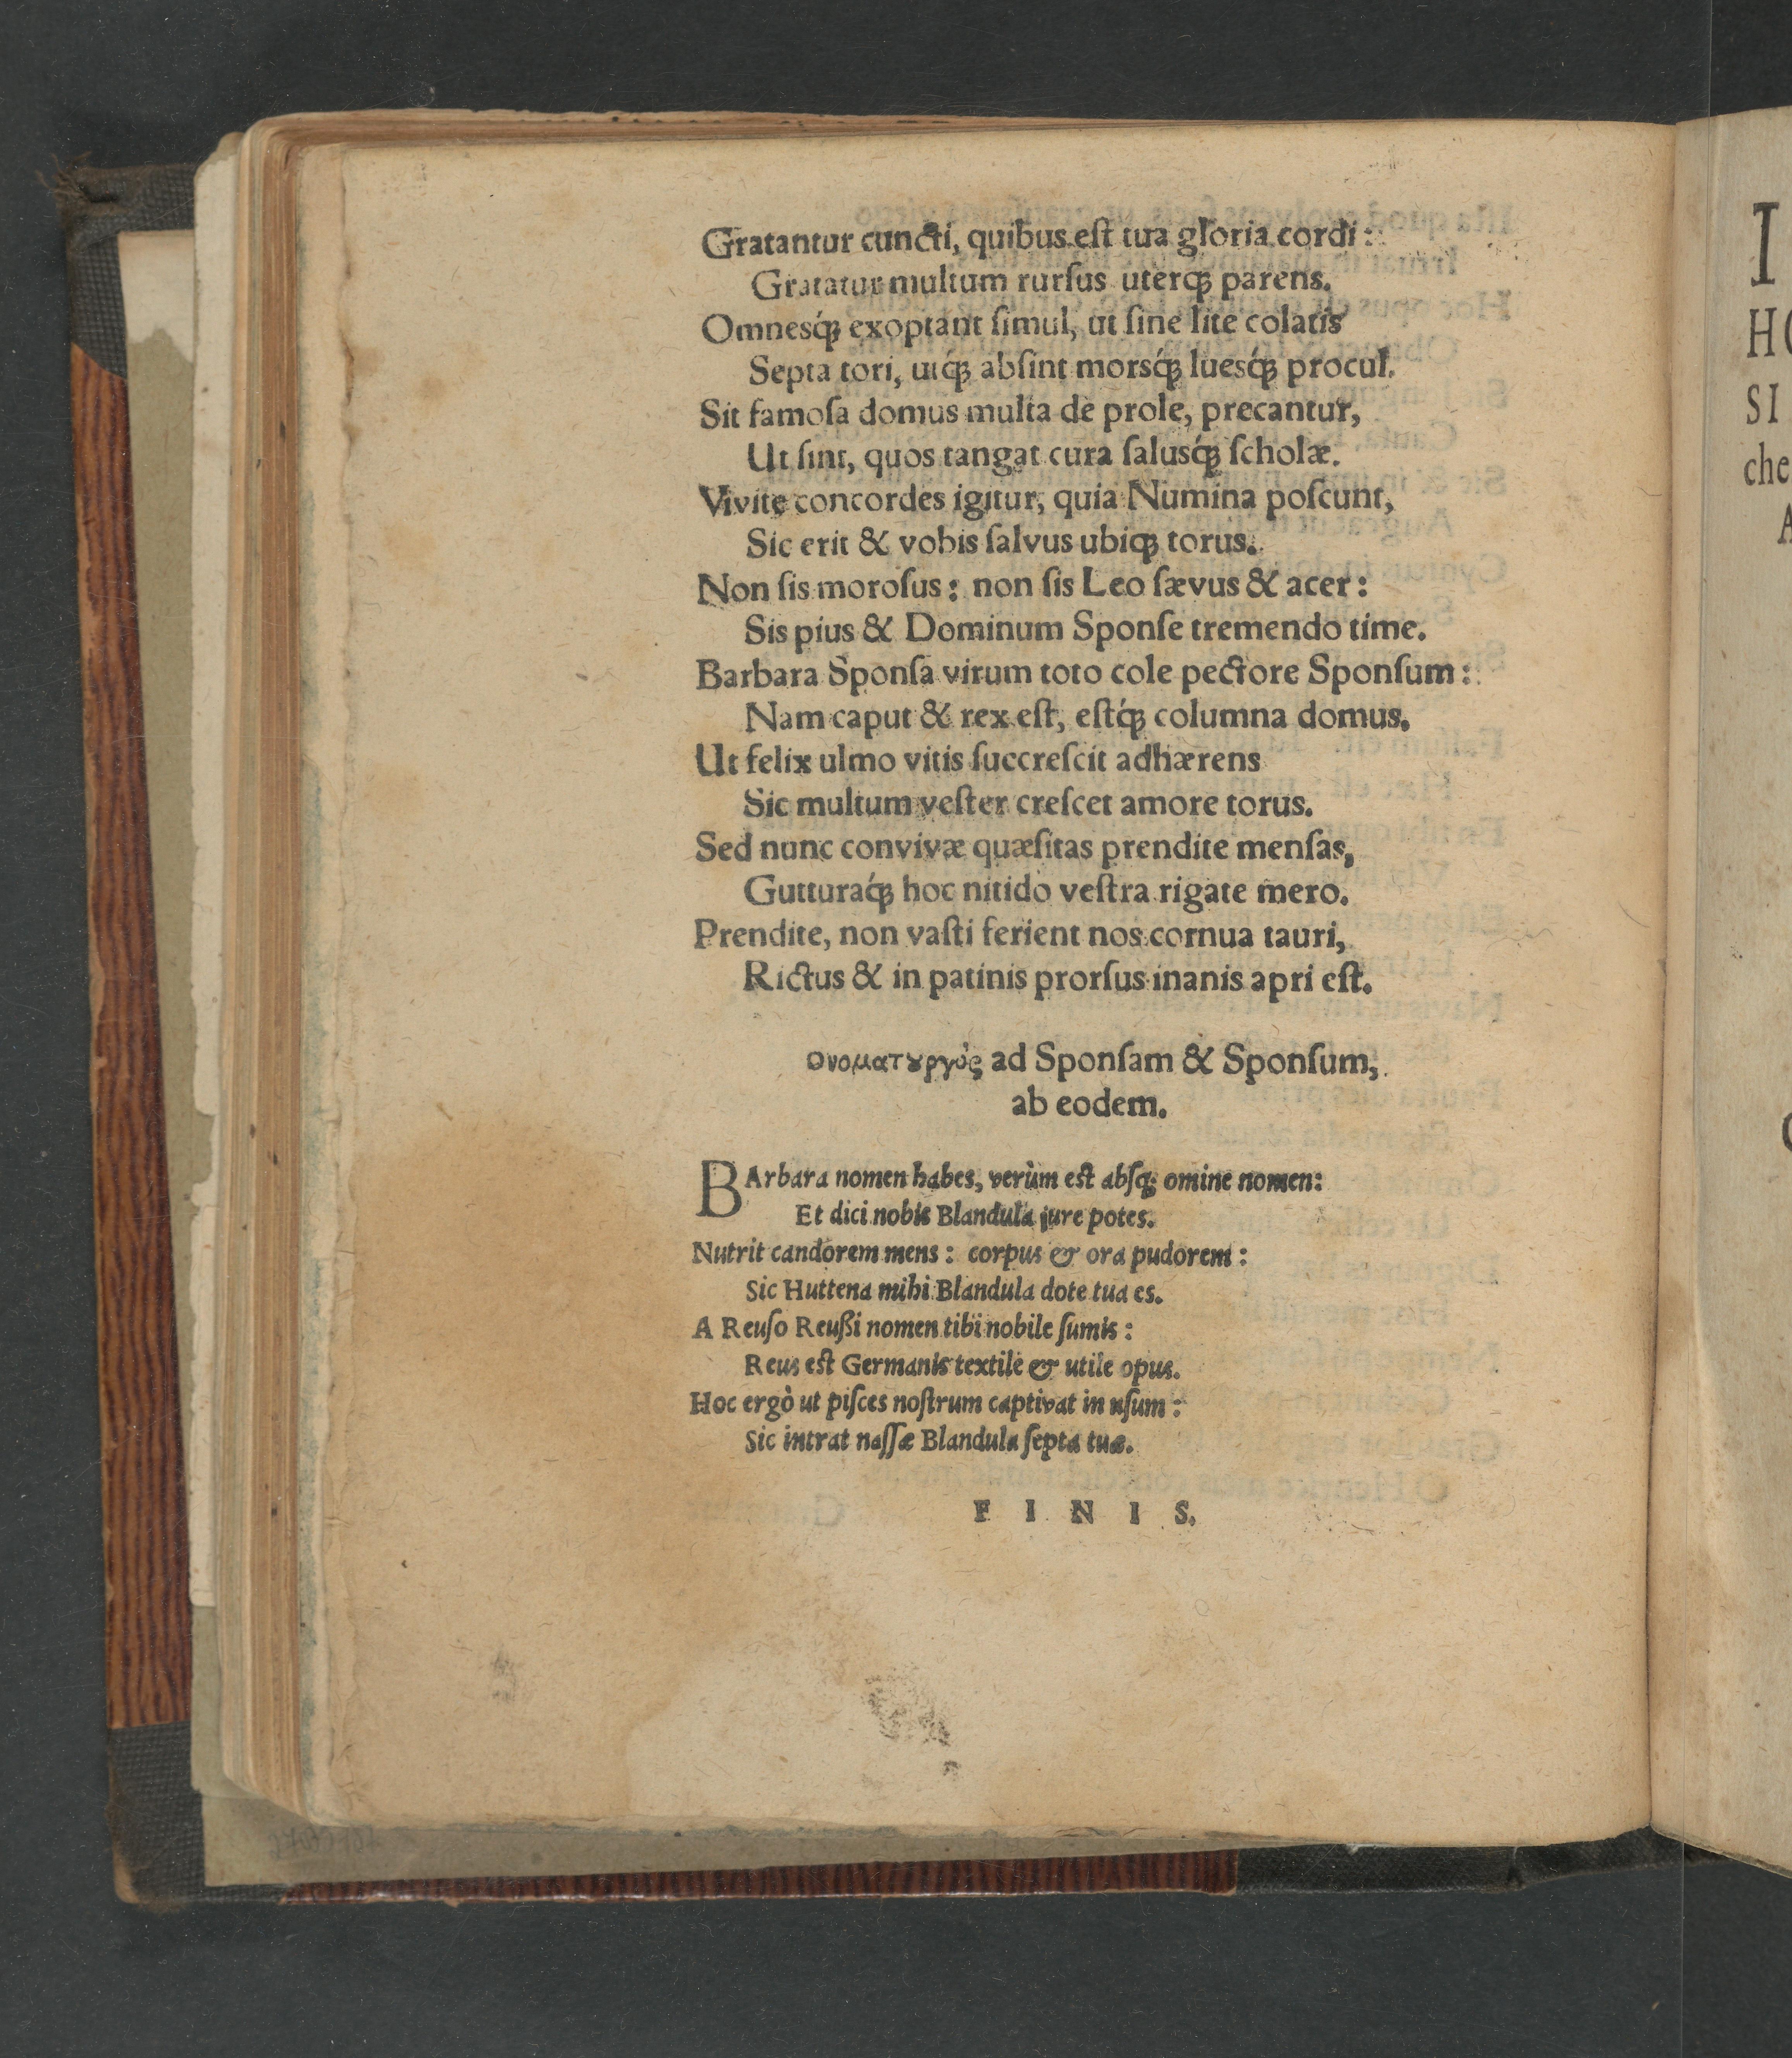 Gratantur cuncti, quibus est tua gloria cordi:
Gratatur multum rursus uterq́; parens.
Omnesq́; exoptant simul, ut sine lite colatis
Septa tori, utq́; absint morsq́; luesq́; procul.
Sit famosa domus multa de prole, precantur,
Ut sint, quos tangat cura salusq́; scholæ.
Vivite concordes igitur, quia Numina poscunt,
Sic erit & vobis salvus ubiq; torus.
Non sis morosus: non sis Leo sævus & acer:
Sis pius & Dominum Sponse tremendo time.
Barbara Sponsa virum toto cole pectore Sponsum:
Nam caput & rex est, estq́; columna domus.
Ut felix ulmo vitis succrescit adhærens
Sic multum vester crescet amore torus.
Sed nunc convivæ quæsitas prendite mensas,
Gutturaq́; hoc nitido vestra rigate mero.
Prendite, non vasti ferient nos cornua tauri,
Rictus & in patinis prorsus inanis apri est.
Ονοματȣργὸς ad Sponsam & Sponsum,
ab eodem.
BArbara nomen habes, verùm est absq; omine nomen:
Et dici nobis Blandula jure potes.
Nutrit candorem mens: corpus & ora pudorem:
Sic Huttena mihi Blandula dote tua es.
A Reuso Reußi nomen tibi nobile sumis:
Reus est Germanis textile & utile opus.
Hoc ergò ut pisces nostrum captivat in usum:
Sic intrat nassæ Blandula septa tuæ.
F I N I S.
I
HO
SI
che
A